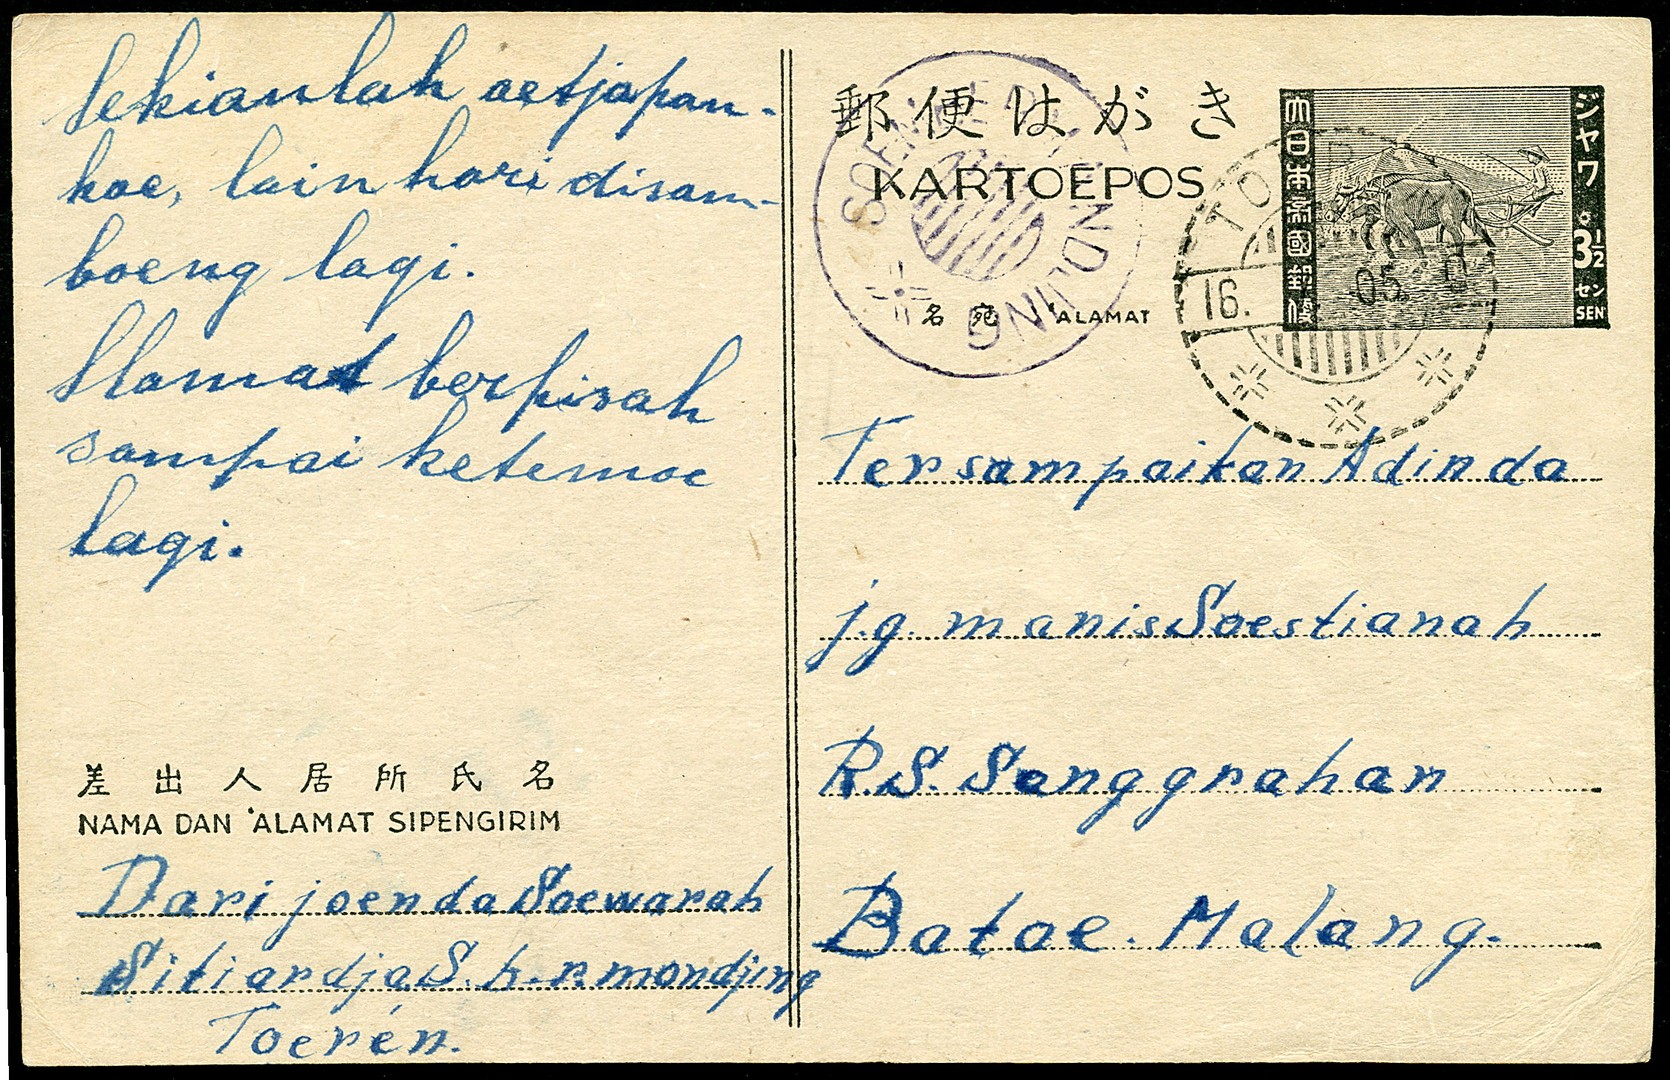 Sekianlah oetjapan-
koe, lain hari disam-
boeng lagi.
Slamat berpisah
sampai ketemoe
lagi.
差出人居所氏名
NAMA DAN 'ALAMAT SIPENGIRIM
Dari joenda Soewarah
Sitiardja S. h. r. mondjing
Toerén.
郵便はがき
KARTOEPOS
名宛 'ALAMAT
大日本帝國郵便
ジャワ
3½
セン
SEN
16.
05
Tersampaikan Adinda
j.g. manis Soestianah
R.S. Senggrahan
Batoe. Malang.